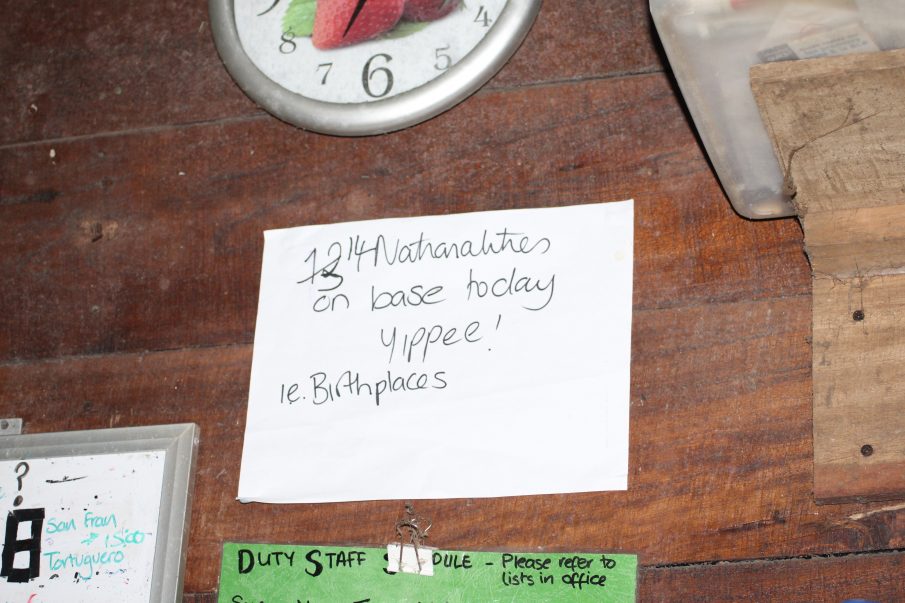 9
8
7
6
5
4
13 14 Nationalities
on base today
Yippee!
ie. Birthplaces
?
8
San Fran
→ 15:00
Tortuguero
DUTY STAFF S DULE - Please refer to
lists in office